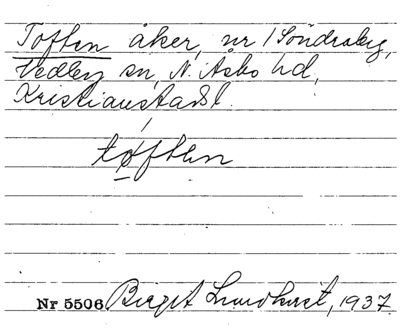 Toften åker, nr 1 Söndraby,
Vedby sn, N. Åsbo hd,
Kristianstads l.
tøften
Nr 5506 Birgit Lundkvist, 1937.